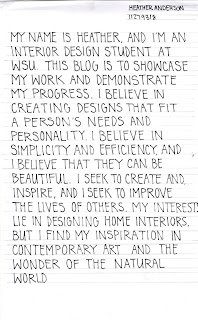 HEATHER ANDERSON
11279318
MY NAME IS HEATHER, AND I'M AN
INTERIOR DESIGN STUDENT AT
WSU. THIS BLOG IS TO SHOWCASE
MY WORK AND DEMONSTRATE
MY PROGRESS. I BELIEVE IN
CREATING DESIGNS THAT FIT
A PERSON'S NEEDS AND
PERSONALITY. I BELIEVE IN
SIMPLICITY AND EFFICIENCY, AND
I BELIEVE THAT THEY CAN BE
BEAUTIFUL. I SEEK TO CREATE AND
INSPIRE, AND I SEEK TO IMPROVE
THE LIVES OF OTHERS. MY INTERESTS
LIE IN DESIGNING HOME INTERIORS,
BUT I FIND MY INSPIRATION IN
CONTEMPORARY ART AND THE
WONDER OF THE NATURAL
WORLD